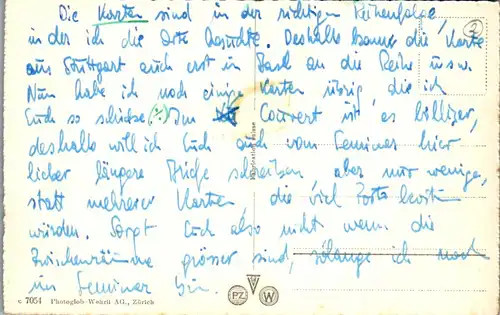 Die Karten sind in der richtigen Reihenfolge,
in der ich die Orte besuchte. Deshalb kommt die Karte
aus Stuttgart auch erst in Basel an die Reihe usw.
Nun habe ich noch einige Karten übrig, die ich
Euch so schicke. Im Couvert ist es billiger,
deshalb will ich Euch auch vom Seminar hier
lieber längere Briefe schreiben, aber nur wenige,
statt mehrerer Karten, die viel Porto kosten
würden. Sorgt Euch also nicht wenn die
Zwischenräume grösser sind, solange ich noch
im Seminar bin.
2
7054 Photoglob-Wehrli AG., Zürich
PZ W